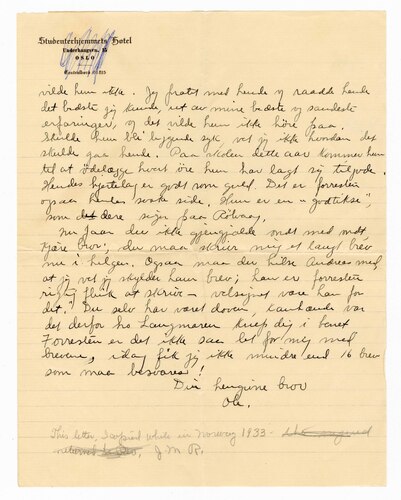 Studenterhjemmets Hotel
Underhaugsvn. 15
OSLO
Centralbord
vilde hun ikke. Jeg pratet med hende og raadte hende
det bedste jeg kunde, ut av mine bedste og sandeste
erfaringer, og det vilde hun ikke høre paa.
Skulde hun bli liggende syk, vet jeg ikke hvordan det
skulde gaa hende. Paa skolen dette aar kommer hun
til at ødelægge hvert øre hun har lagt sig tilgode.
Hendes hjertelag er godt som guld. Det er forresten
ogsaa hendes svake side. Hun er en "godtikse",
som det dere sier paa Rølvaag.
Nu faar du ikke gjengjælde ondt med ondt,
kjære bror: du maa skrive mig et langt brev
nu i helgen. Ogsaa maa du hilse Andreas med,
at jeg vet jeg skylder ham brev; han er forresten
rigtig flink at skrive – velsignet være han for
dit! Du selv har været doven, kanhænde var
det derfor ho Langmaren kneip dig i
Forresten er det ikke saa let for mig med
brevene, idag fik jeg ikke mindre end 16 brev
som maa besvares!
Din hengivne bror
Ole.
This letter, I while in Norway 1933
J.M.R.